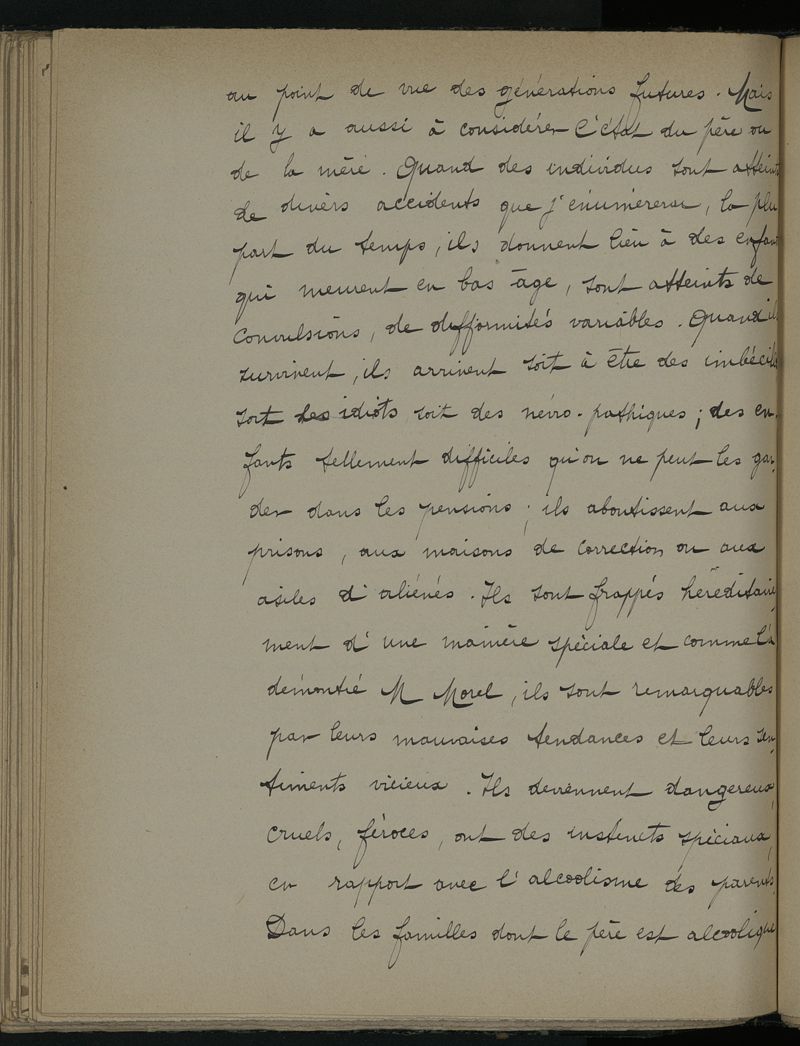 au point de vue des générations futures. Mais
il y a aussi à considérer l'état du père ou
de la mère. Quand des individus sont atteints
de divers accidents que j'énumérerai, la plu
part du temps, ils donnent lieu à des enfants
qui meurent en bas âge, sont atteints de
convulsions, de difformités variables. Quand ils
survivent, ils arrivent soit à être des imbéciles
soit des idiots soit des névro-pathiques; des en-
fants tellement difficiles qu'on ne peut les gar-
der dans les pensions; ils aboutissent aux
prisons, aux maisons de correction ou aux
asiles d'aliénés. Ils sont frappés héréditaire-
ment d'une manière spéciale et comme l'a
démontré M Morel, ils sont remarquables
par leurs mauvaises tendances et leurs sen-
timents vicieux. Ils deviennent dangereux,
cruels, féroces, ont des instincts spéciaux,
en rapport avec l'alcoolisme des parents.
Dans les familles dont le père est alcoolique